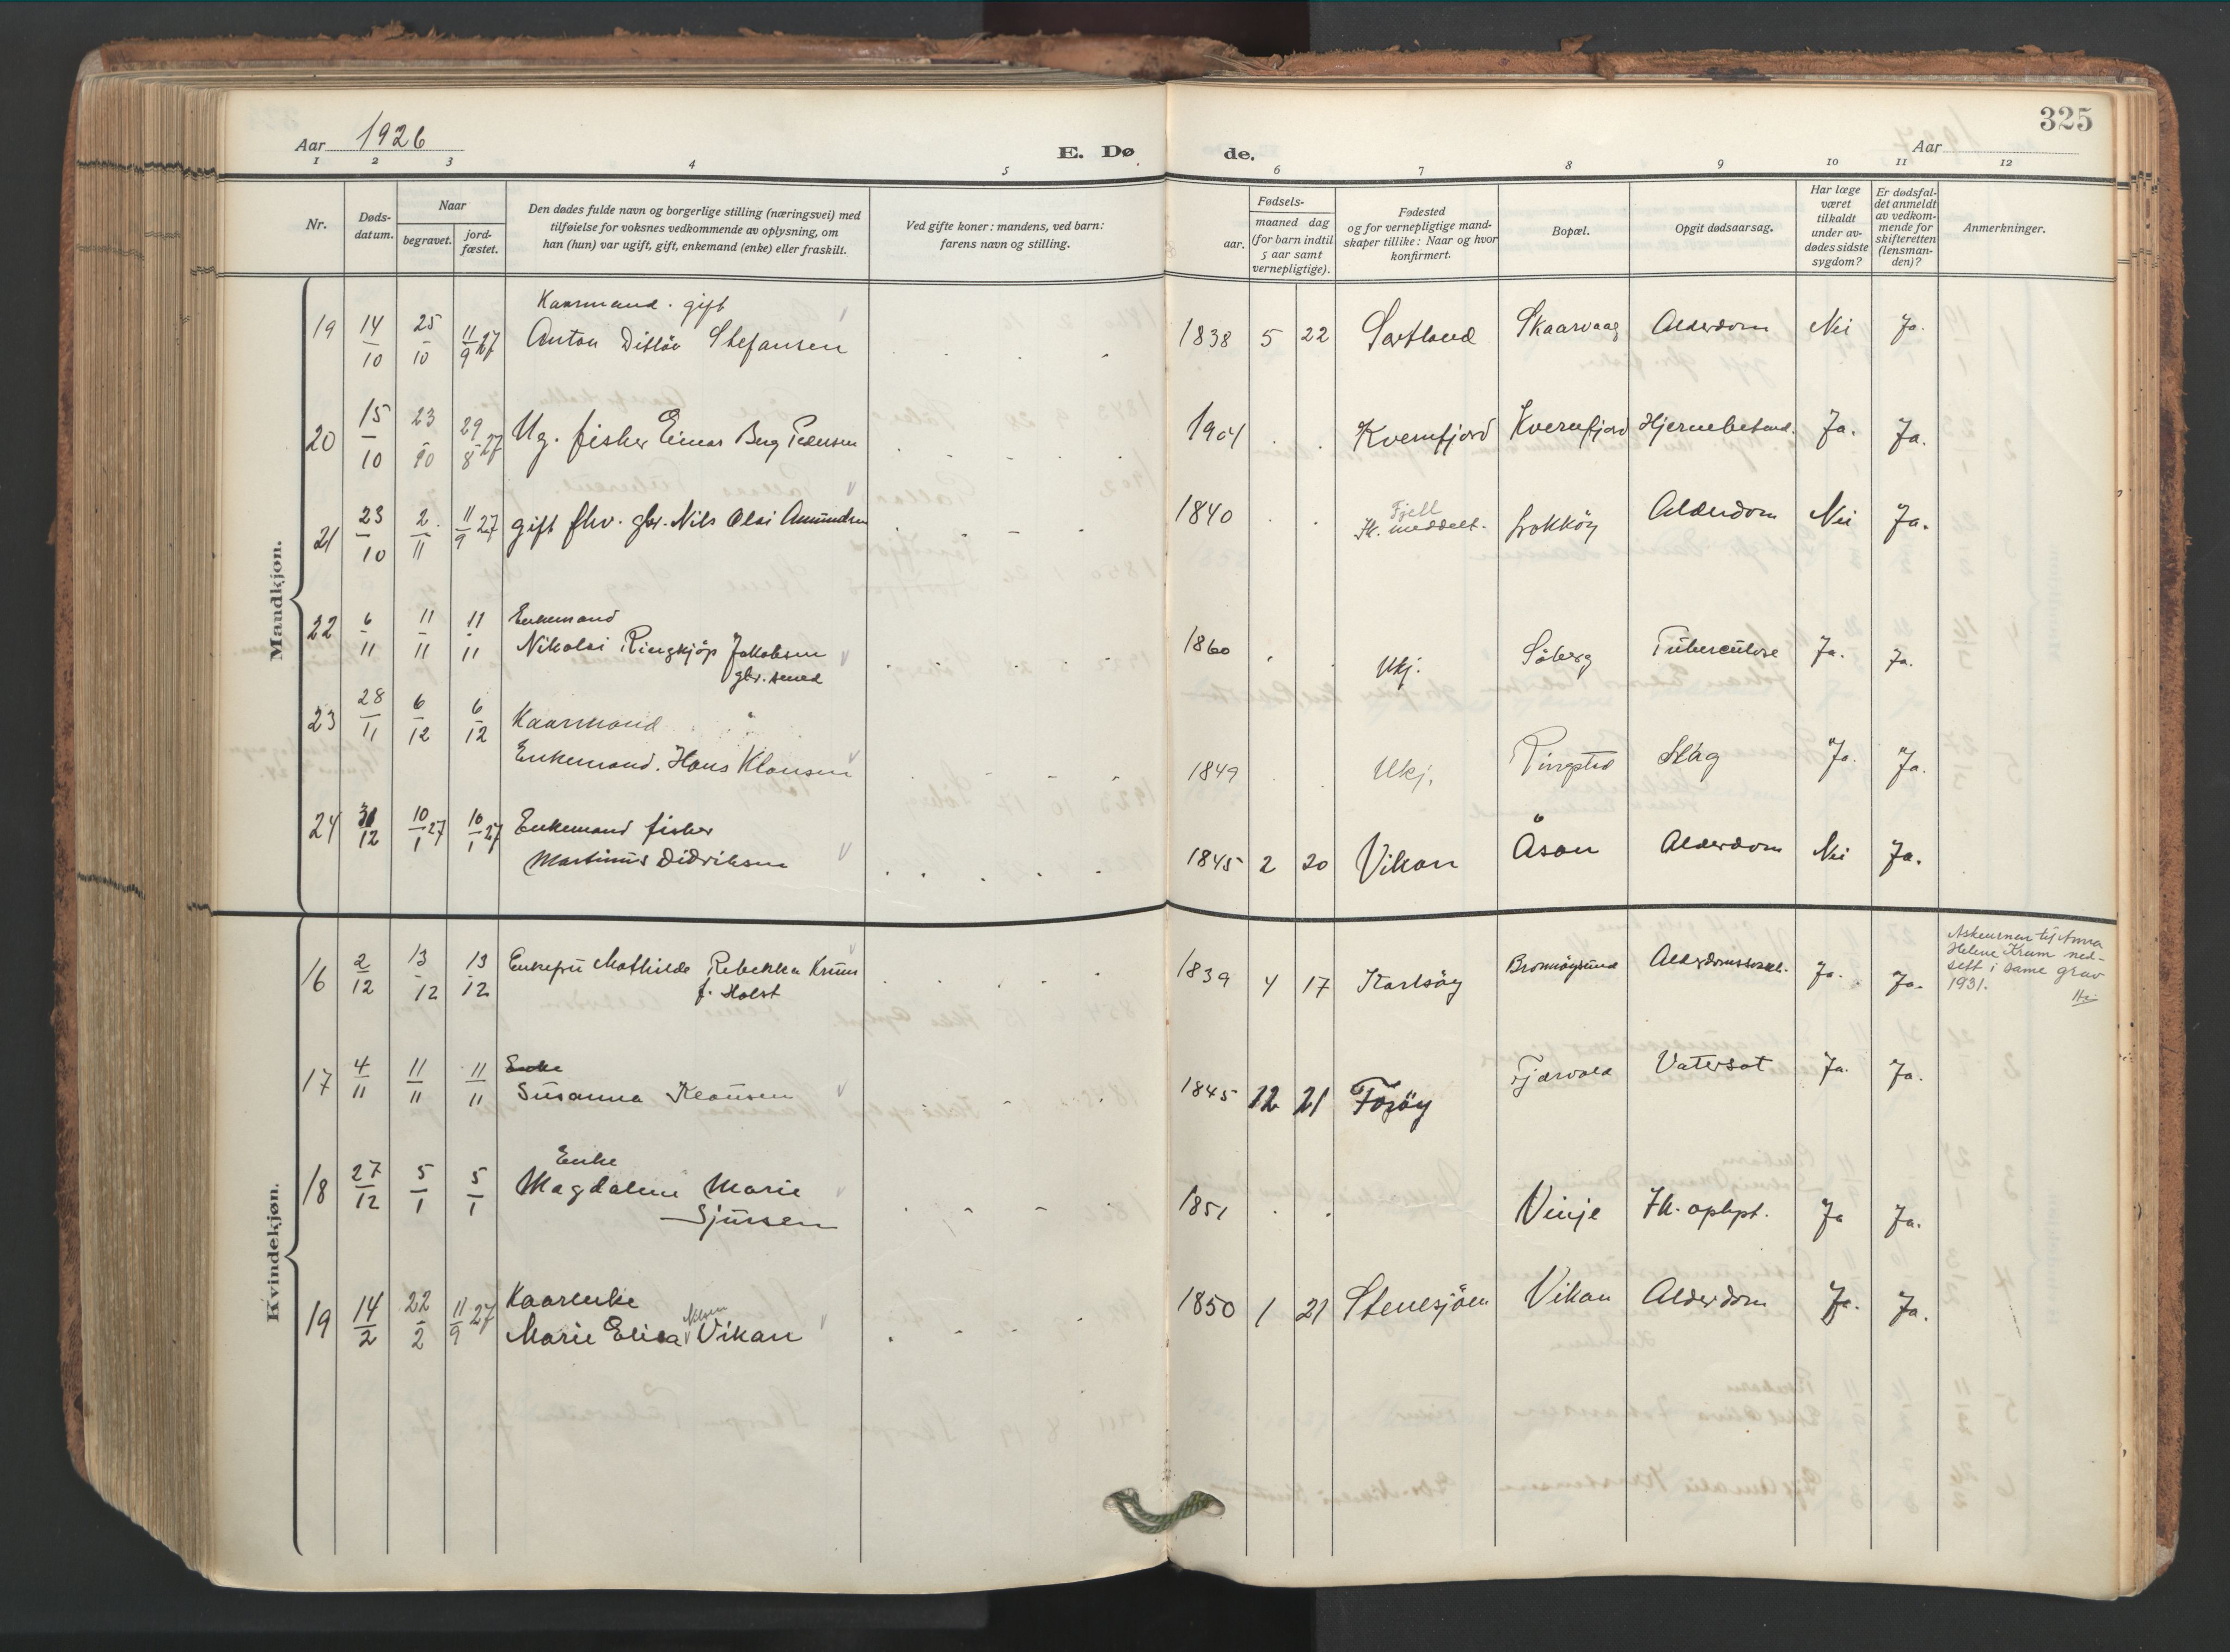 325
Aar 1926
E. Dø
de.
Aar
1 2 3 4 5 6 7 8 9 10 11 12
Nr.
Døds-
datum.
Naar
begravet.
jord-
fæstet.
Den dødes fulde navn og borgerlige stilling (næringsvei) med
tilføielse for voksnes vedkommende av oplysning, om
han (hun) var ugift, gift, enkemand (enke) eller fraskilt.
Ved gifte koner: mandens, ved barn:
farens navn og stilling.
Fødsels-
aar.
maaned dag
(for barn indtil
5 aar samt
vernepligtige).
Fødested
og for vernepligtige mand-
skaper tillike: Naar og hvor
konfirmert.
Bopæl.
Opgit dødsaarsag.
Har læge
været
tilkaldt
under av-
dødes sidste
sygdom?
Er dødsfal-
det anmeldt
av vedkom-
mende for
skifteretten
(lensman-
den)?
Anmerkninger.
Mandkjøn.
Kaarmand. gift
19 14/10 25/10 11/9 27 Anton Ditløv Stefansen 1838 5 22 Sortland Skaarvaag Alderdom Nei Ja.
20 15/10 23/10 29/8 27 Ug. fisker Einar Berg Pedersen 1904 Kvernfjord Kvernfjord Hjernebetænd. Ja. Ja.
Fjell
21 23/10 2/11 11/9 27 gift fhv. gbr. Nils Olai Amundsen 1840 Ik. meddelt. Alderdom Nei Ja.
Enkemand
22 6/11 11/11 11/11 Nikolai Ringkjøp Jakobsen 1860 Ukj. Søberg Tuberculose Ja. Ja.
gbr. smed
23 28/11 6/12 6/12 Kaarmand
Enkemand. Hans Klausen 1849 Ukj. Ringstad Slag Ja. Ja.
24 31/12 10/1 27 10/1 27 Enkemand fisker
Martinus Didriksen 1845 2 20 Vikan Åsan Alderdom Nei Ja.
Kvindekjøn.
16 2/12 13/12 13/12 Enkefru Mathilde Rebekka Krum 1839 4 17 Karlsøy Brønnøysund Ja. Ja.
f. Holst
Askeurnen til Anna
Helene Krum ned-
sett i same grav
1931.
Enke
17 4/11 11/11 11/11 Susanna Klausen 1845 12 21 Forøy Fjærvold Vatersot Ja. Ja.
Enke
18 27/12 5/1 5/1 Magdalene Marie 1851 Vinje Ik. oplyst. Ja Ja.
Sjursen
Kaarenke
19 14/2 22/2 11/9 27 Marie Elisa Vikan 1850 1 21 Stenesjøen Vikan Alderdom Ja. Ja.